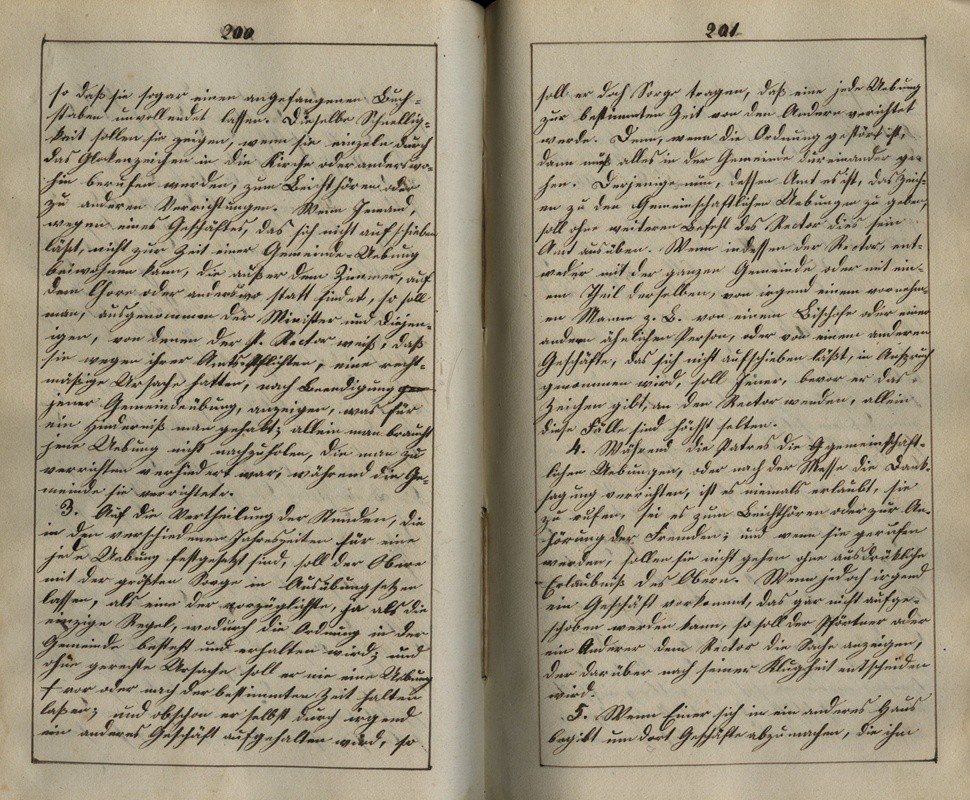 200
so daß sie sogar einen angefangenen Buch-
staben unvollendet lassen. Dieselbe Schnellig-
keit sollen sie zeigen, wenn sie einzeln durch
das Glockenzeichen in die Kirche oder anderswo-
hin berufen werden, zum Beichthören oder
zu anderen Verrichtungen. Wenn Jemand,
wegen eines Geschäftes, das sich nicht aufschieben
läßt, nicht zur Zeit einer Gemeinde-Uebung
beiwohnen kann, die außer dem Zimmer, auf
dem Chore oder anderswo statt findet, so soll
man, ausgenommen der Minister und Diejen-
igen, von denen der P. Rector weiß, daß
sie wegen ihrer Amtspflichten, eine recht-
mäßige Ursache hatten, nach Beendigung
jener Gemeindeübung, anzeigen, was für
ein Hinderniß man gehabt; allein man braucht
jene Uebung nicht nachzuholen, die man zu
verrichten verhindert war, während die Ge-
meinde sie verrichtete.
3. Auf die Vertheilung der Stunden, die
in den verschiedenen Jahreszeiten für eine
jede Uebung festgesetzt sind, soll der Obere
mit der größten Sorge in Ausübung setzen
lassen, als eine der vorzüglichsten, ja als die
einzige Regel, wodurch die Ordnung in der
Gemeinde besteht und erhalten wird; und
ohne gerechte Ursache soll er nie eine Uebung
+ vor oder nach der bestimmten Zeit halten
laßen; und obschon er selbst durch irgend
ein anderes Geschäft aufgehalten wird, so
201
soll er doch Sorge tragen, daß eine jede Uebung
zur bestimmten Zeit von den Andern verrichtet
werde. Denn, wenn die Ordnung gestört ist,
dann muß alles in der Gemeinde durcheinander ge-
hen. Derjenige nun, dessen Amt es ist, das Zeich-
en zu den Gemeinschaftlichen Uebungen zu geben,
soll ohne weiteren Befehl des Rector dies sein
Amt ausüben. Wenn indessen der Rector, ent-
weder mit der ganzen Gemeinde oder mit ein-
em Theil derselben, von irgend einem vornehm-
en Manne z. B. von einem Bischofe oder einer
andern ähnlichen Person, oder von einem anderen
Geschäfte, das sich nicht aufschieben läßt, in Anspruch
genommen wird, soll Jener, bevor er das
Zeichen gibt, an den Rector wenden, allein
diese Fälle sind höchst selten.
4. Während die Patres die gemeinschaft-
lichen Uebungen, oder nach der Messe die Dank-
sagung verrichten, ist es niemals erlaubt, sie
zu rufen, sei es zum Beichthören oder zur An-
hörung der Fremden; und wenn sie gerufen
werden, sollen sie nicht gehen ohne ausdrückliche
Erlaubniß des Obern. Wenn jedoch irgend
ein Geschäft vorkommt, das gar nicht aufge-
schoben werden kann, so soll der Pförtner oder
ein Anderer dem Rector die Sache anzeigen,
der darüber nach seiner Klugheit entscheiden
wird.
5. Wenn Einer sich in ein anderes Haus
begibt um dort Geschäfte abzumachen, die ihm